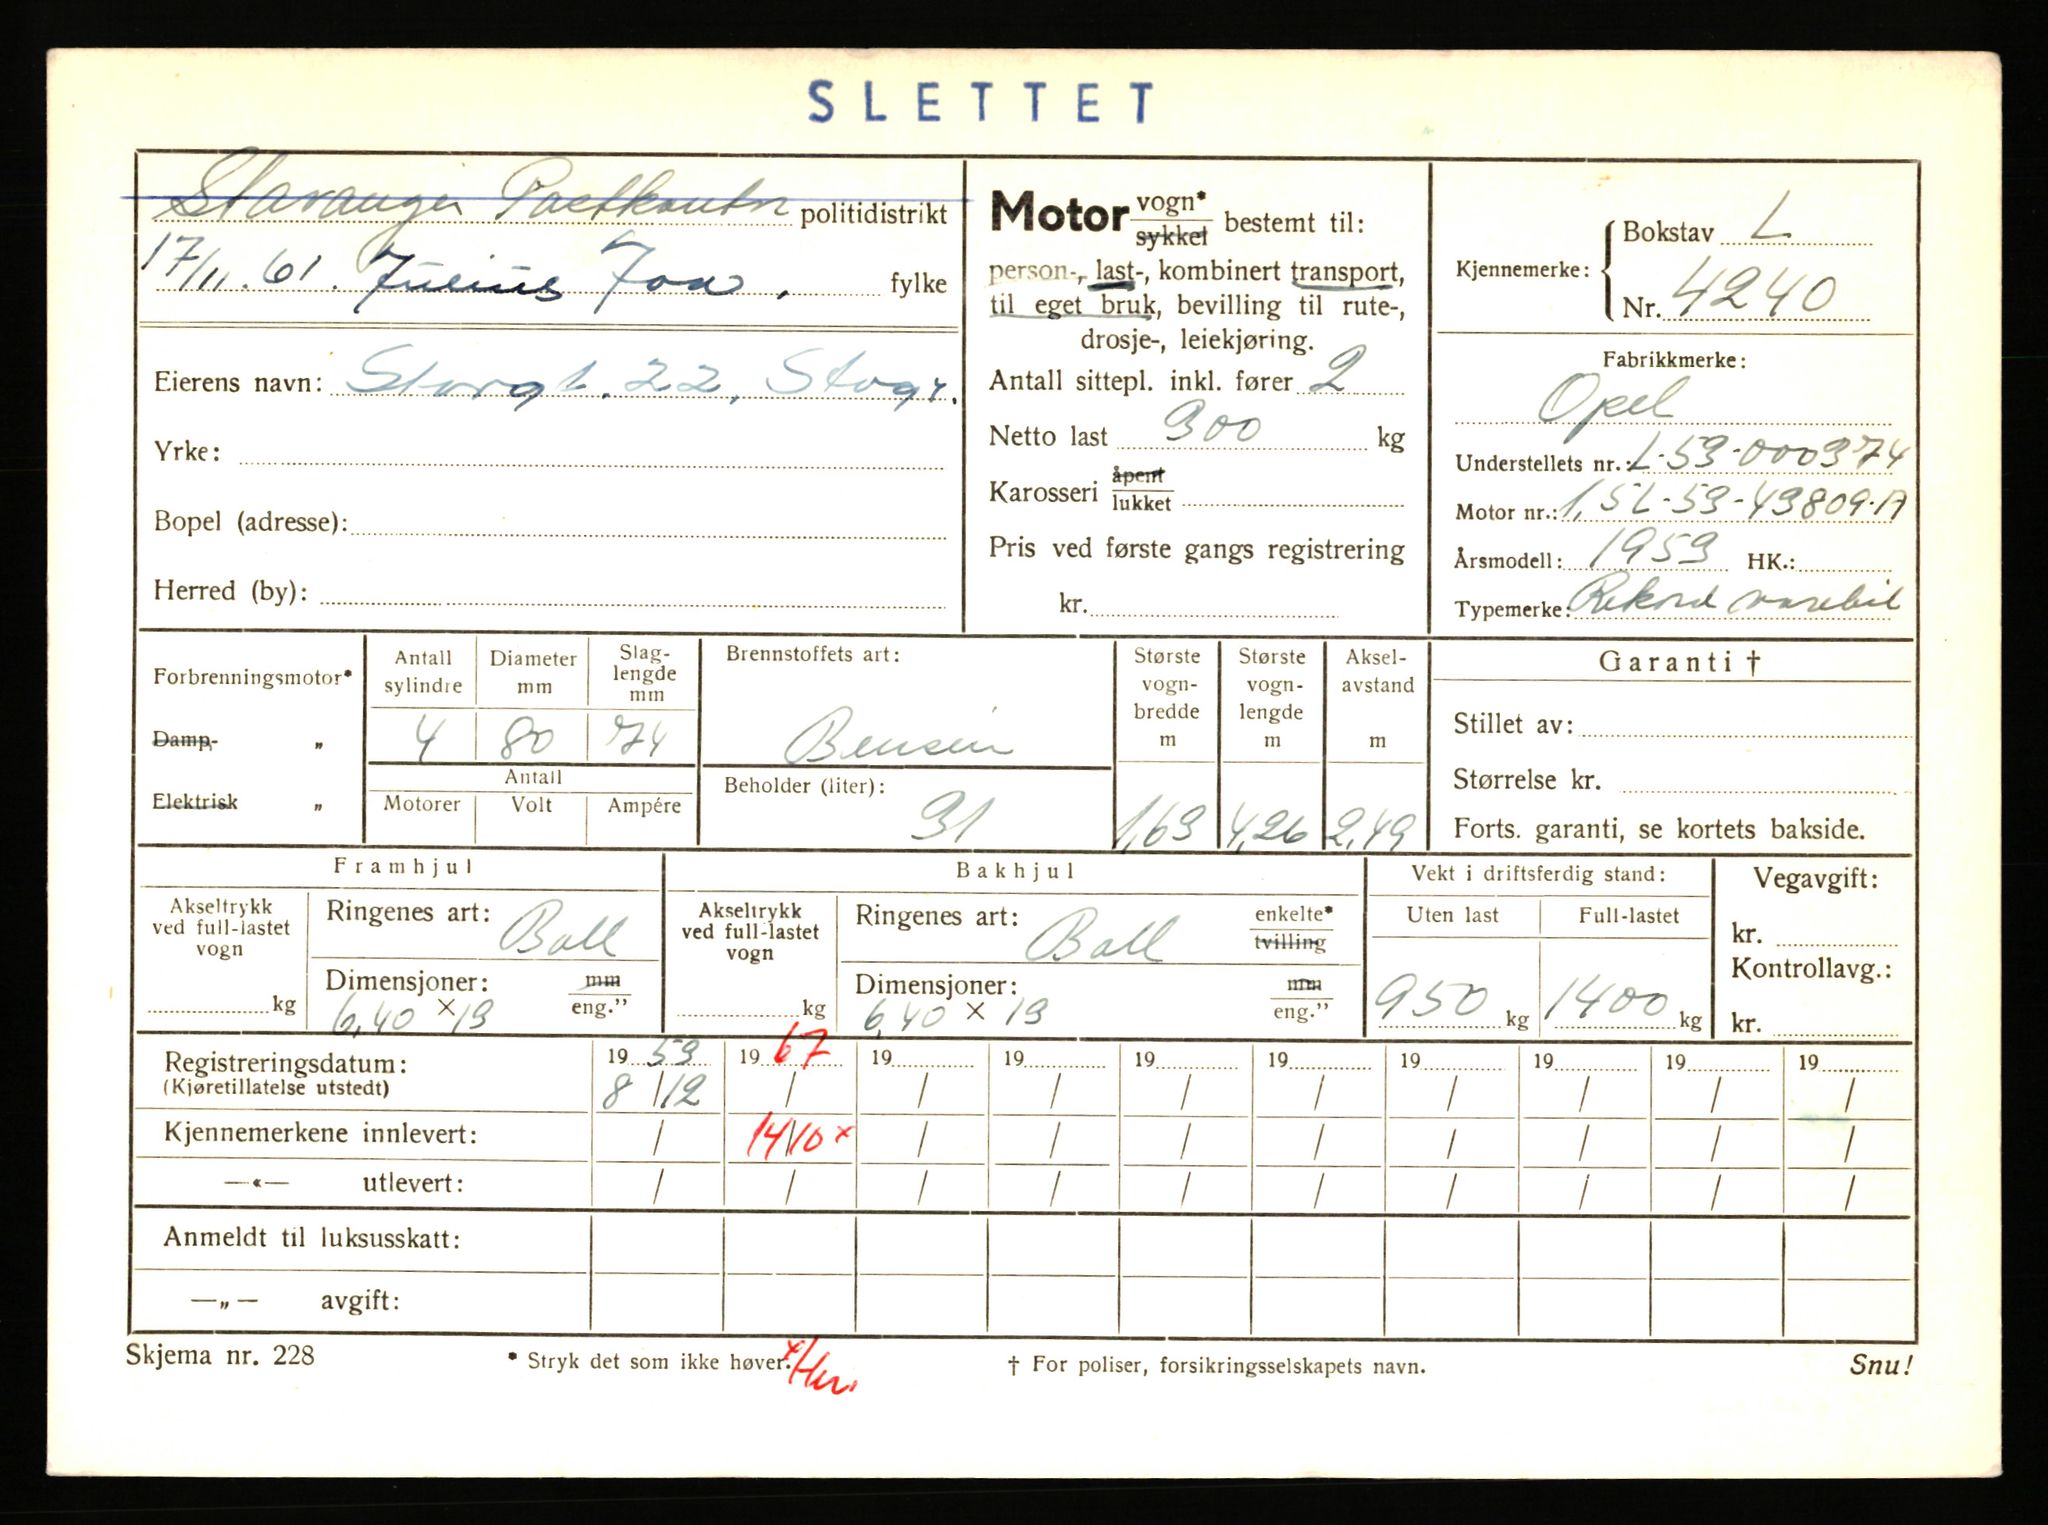 SLETTET
Stavanger Postkontor politidistrikt
17/11.61. Julius Joa, fylke
Eierens navn: Storgt. 22, Stvgr.
Yrke:
Bopel (adresse):
Herred (by):
Motor vogn* sykkel bestemt til:
person-, last-, kombinert transport,
til eget bruk, bevilling til rute-,
drosje-, leiekjøring.
Antall sittepl. inkl. fører 2
Netto last 300 kg
Karosseri åpent lukket
Pris ved første gangs registrering
kr.
Kjennemerke: Bokstav L
Nr. 4240
Fabrikkmerke:
Opel
Understellets nr.: L-53-000374
Motor nr.: 1,5L-53-43809-A
Årsmodell: 1953 HK.:
Typemerke: Rekord varebil
Forbrenningsmotor*
Damp- „
Elektrisk „
Antall sylindre Diameter mm Slag-lengde mm
4 80 74
Antall
Motorer Volt Ampére
Brennstoffets art:
Bensin
Beholder (liter):
31
Største vogn-bredde m Største vogn-lengde m Aksel-avstand m
1,63 4,26 2,49
Garanti †
Stillet av:
Størrelse kr.
Forts. garanti, se kortets bakside.
Framhjul
Akseltrykk ved full-lastet vogn
kg
Ringenes art: Ball
Dimensjoner: mm eng.”
6,40 × 13
Bakhjul
Akseltrykk ved full-lastet vogn
kg
Ringenes art: Ball enkelte* tvilling
Dimensjoner: mm eng.”
6,40 × 13
Vekt i driftsferdig stand:
Uten last Full-lastet
950 kg 1400 kg
Vegavgift:
kr.
Kontrollavg.:
kr.
Registreringsdatum: 19 53 19 67 19 19 19 19 19 19 19 19
(Kjøretillatelse utstedt) 8/12 / / / / / / / / /
Kjennemerkene innlevert: / 14/10 x / / / / / / / /
—«— utlevert: / / / / / / / / / /
Anmeldt til luksusskatt:
—„— avgift:
Skjema nr. 228 * Stryk det som ikke høver. † For poliser, forsikringsselskapets navn. Snu!